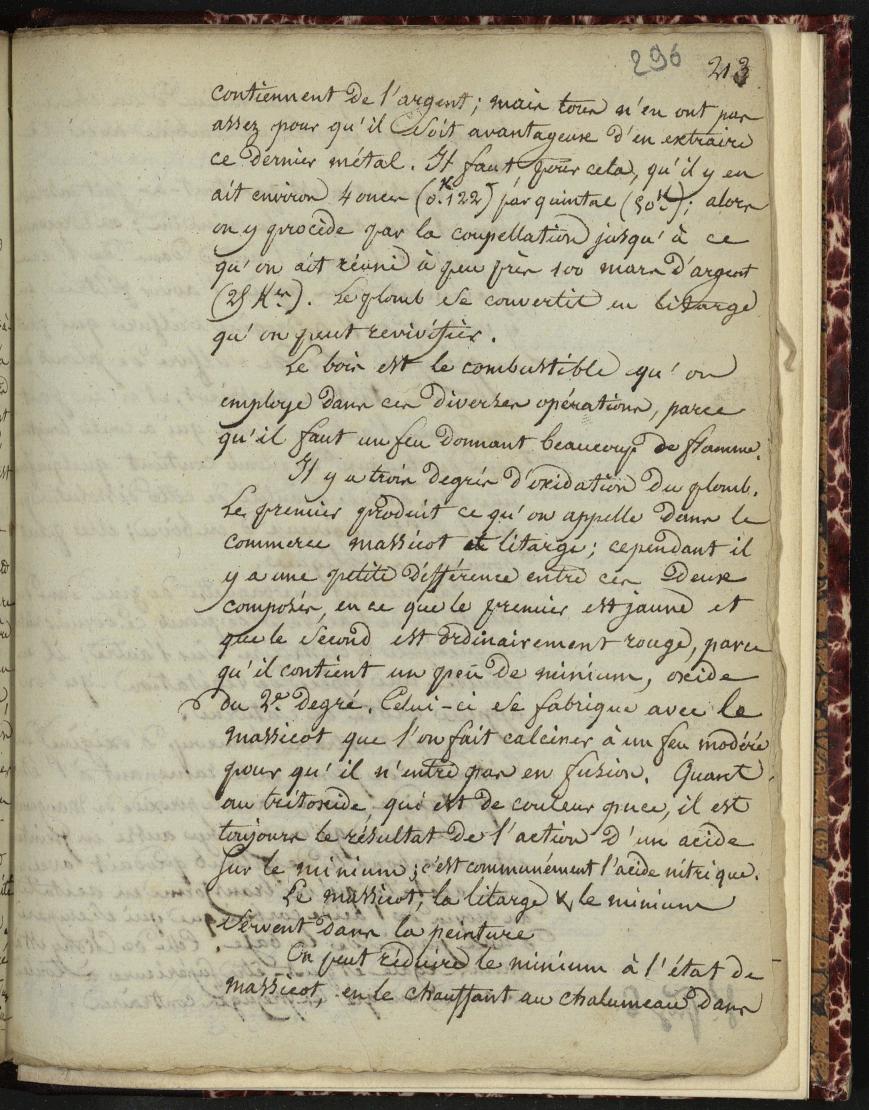 296 213
contiennent de l'argent; mais tous n'en ont pas
assez pour qu'il soit avantageux d'en extraire
ce dernier métal. Il faut pour cela, qu'il y en
ait environ 4 onces (0.K122) par quintal (50K.); alors
on y procède par la coupellation jusqu'à ce
qu'on ait réuni à peu près 100 marcs d'argent
(25 Krs). Le plomb se convertit en litarge
qu'on peut revivifier.
Le bois est le combustible qu'on
employe dans ces diverses opérations, parce
qu'il faut un feu donnant beaucoup de flamme.
Il y a trois degrés d'oxidation du plomb.
Le premier produit ce qu'on appelle dans le
commerce massicot et litarge; cependant il
y a une petite différence entre ces deux
composés, en ce que le premier est jaune et
que le second est ordinairement rouge, parce
qu'il contient un peu de minium, oxide
du 2e. degré. Celui-ci se fabrique avec le
massicot que l'on fait calciner à un feu modéré
pour qu'il n'entre pas en fusion. Quant
au tritoxide qui est de couleur puce, il est
toujours le résultat de l'action d'un acide
sur le minium; c'est communément l'acide nitrique.
Le massicot, la litarge & le minium
servent dans la peinture
On peut réduire le minium à l'état de
massicot, en le chauffant au chalumeau dans